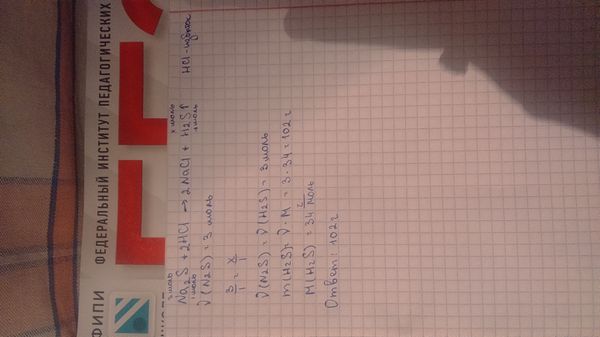 ФИПИ
ФЕДЕРАЛЬНЫЙ ИНСТИТУТ ПЕДАГОГИЧЕСКИХ
3 моль x моль
Na₂S + 2HCl → 2NaCl + H₂S↑ HCl - избыток
1 моль 1 моль
ν(N2S) = 3 моль
3/1 = x/1
ν(N2S) = ν(H2S) = 3 моль
m(H2S) = ν · M = 3 · 34 = 102 г
M(H2S) = 34 г/моль
Ответ: 102 г